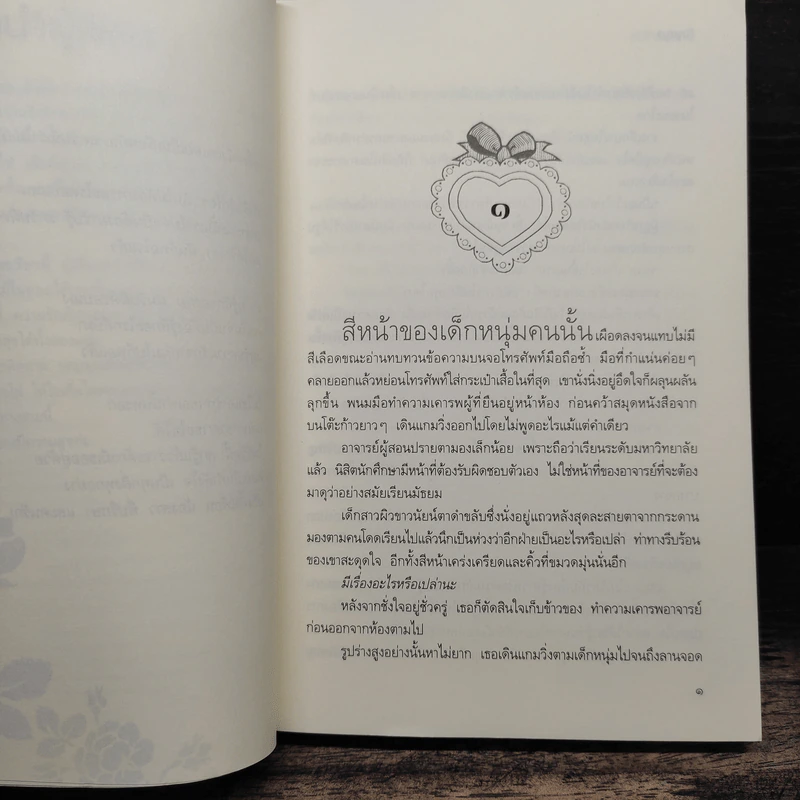 ๑
สีหน้าของเด็กหนุ่มคนนั้น เผือดลงจนแทบไม่มี
สีเลือดขณะอ่านทบทวนข้อความบนจอโทรศัพท์มือถือซ้ำ มือที่กำแน่นค่อยๆ
คลายออกแล้วหย่อนโทรศัพท์ใส่กระเป๋าเสื้อในที่สุด เขานั่งนิ่งอยู่อึดใจก็ผลุนผลัน
ลุกขึ้น พนมมือทำความเคารพผู้ที่ยืนอยู่หน้าห้อง ก่อนคว้าสมุดหนังสือจาก
บนโต๊ะก้าวยาวๆ เดินแกมวิ่งออกไปโดยไม่พูดอะไรแม้แต่คำเดียว
อาจารย์ผู้สอนปรายตามองเล็กน้อย เพราะถือว่าเรียนระดับมหาวิทยาลัย
แล้ว นิสิตนักศึกษามีหน้าที่ต้องรับผิดชอบตัวเอง ไม่ใช่หน้าที่ของอาจารย์ที่จะต้อง
มาดุว่าอย่างสมัยเรียนมัธยม
เด็กสาวผิวขาวนัยน์ตาดำขลับซึ่งนั่งอยู่แถวหลังสุดละสายตาจากกระดาน
มองตามคนโดดเรียนไปแล้วนึกเป็นห่วงว่าอีกฝ่ายเป็นอะไรหรือเปล่า ท่าทางรีบร้อน
ของเขาสะดุดใจ อีกทั้งสีหน้าเคร่งเครียดและคิ้วที่ขมวดมุ่นนั่นอีก
มีเรื่องอะไรหรือเปล่านะ
หลังจากชั่งใจอยู่ชั่วครู่ เธอก็ตัดสินใจเก็บข้าวของ ทำความเคารพอาจารย์
ก่อนออกจากห้องตามไป
รูปร่างสูงอย่างนั้นหาไม่ยาก เธอเดินแกมวิ่งตามเด็กหนุ่มไปจนถึงลานจอด
๑